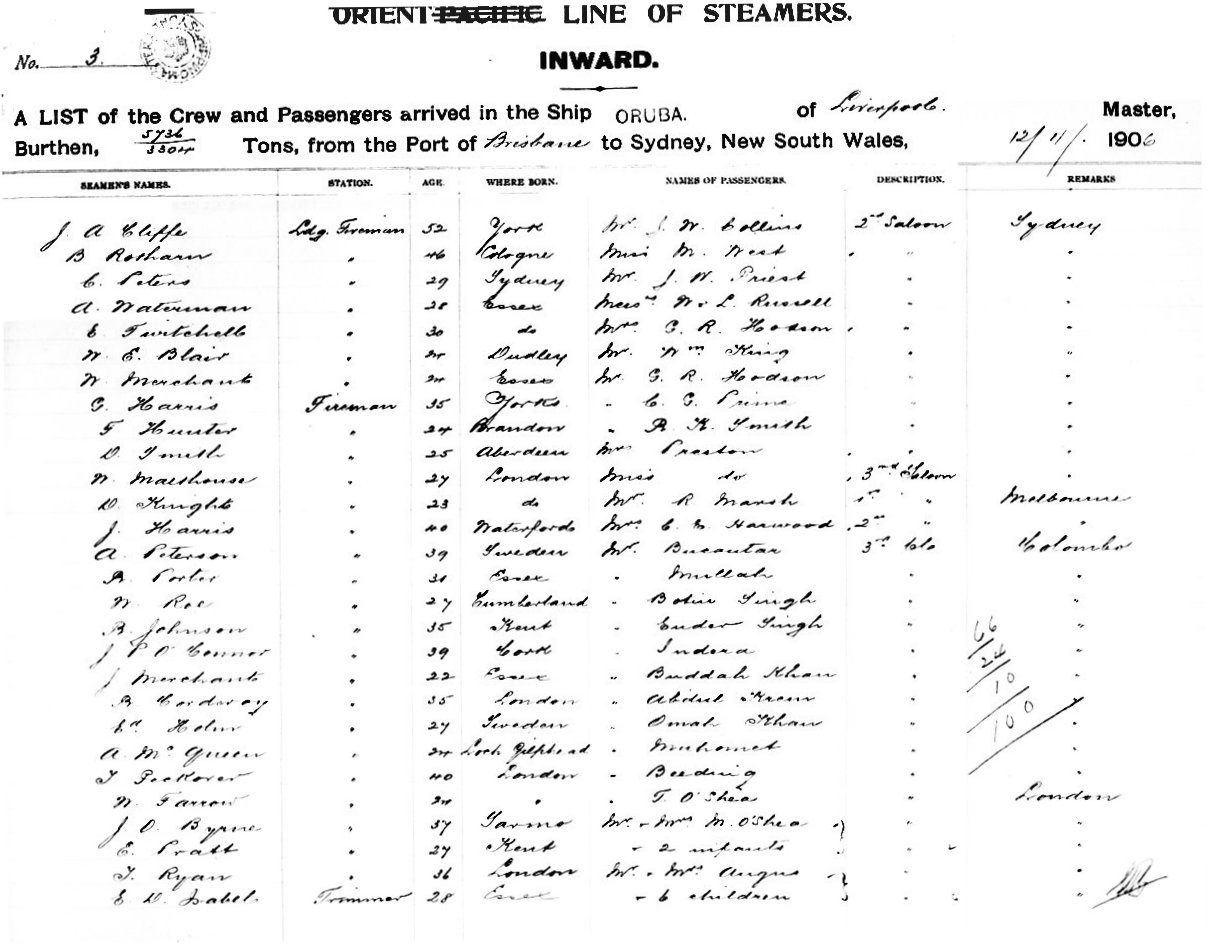 ORIENT-PACIFIC LINE OF STEAMERS.
No. 3.
INWARD.
A LIST of the Crew and Passengers arrived in the Ship ORUBA. of Liverpool. Master,
Burthen, 5736/3304 Tons, from the Port of Brisbane to Sydney, New South Wales, 12/11/. 1906
SEAMEN'S NAMES. STATION. AGE. WHERE BORN. NAMES OF PASSENGERS. DESCRIPTION. REMARKS
J. A Cliffe Ldg. Fireman 52 York Mr. J. W. Collins 2nd Saloon Sydney
B " 46 Cologne Miss M. West " " "
C. Peters " 29 Sydney Mr. J. W. Priest " "
A. Waterman " 28 Essex Messrs W & L. Russell " "
E. Twitchell " 30 do Mrs G. R. Hodson " "
W. E. Blair " 24 Dudley Mr. Wm King " "
W. Merchant " 24 Essex Mr. G. R. Hodson " "
G. Harris Fireman 35 Yorks. " C. G. Prime " "
F Hunter " 24 Brandon " R. K. Smith " "
D. Smith " 25 Aberdeen Mrs Preston " "
W. " 27 London Miss do 3rd Saloon "
D. Knight " 23 do Mr. R. Marsh 1st " Melbourne
J. Harris " 40 Waterford Mrs C. Harwood 2nd " "
A. Peterson " 39 Sweden Mr. 3rd Clo Colombo
R. Porter " 31 Essex " Mullah " "
W. Roe " 27 Cumberland " Singh " "
B. Johnson " 35 Kent " Ender Singh " 66 "
J P O'Connor " 39 Cork " Indera " 24 "
J Merchant " 22 Essex " Buddah Khan " 10 "
R. Corderoy " 35 London " Abdul " 100 "
Ed Holm " 27 Sweden " Omah Khan " "
A. Mc Queen " 24 Loch Gilphead " Muhomet " "
T Peckover " 40 London " Beeding " "
W. Farrow " 24 " " T. O'Shea " London
J. O. Byrne " 37 Mr. & Mrs M. O'Shea } " "
E. Pratt " 27 Kent & 2 infants " " "
T. Ryan " 36 London Mr. & Mrs Angus } " "
E. D. Isabel Trimmer 28 Essex & 6 children " " "